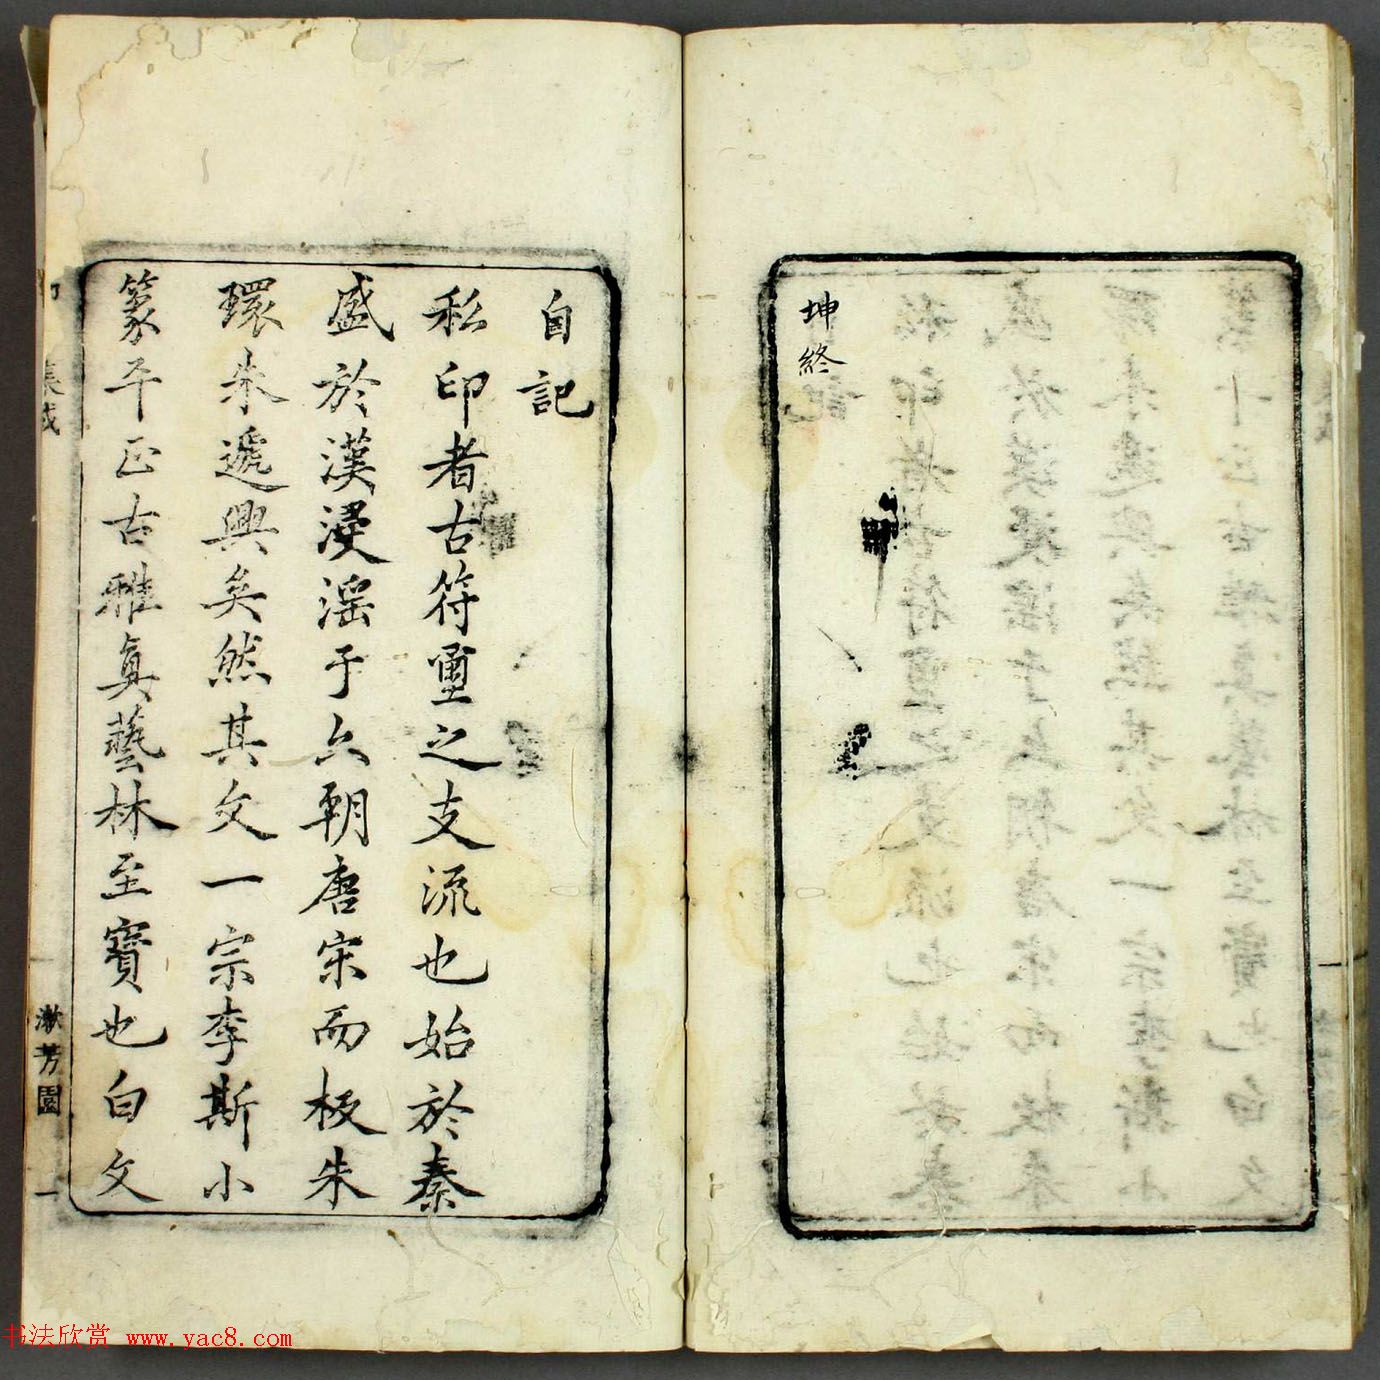 坤終
自記
私印者古符璽之支流也始於秦
盛於漢浸滛于六朝唐宋而极朱
環朱遞興矣然其文一宗李斯小
篆平正古雅真藝林至寳也白文
集成
漱芳園
一
书法欣赏 www.yac8.com